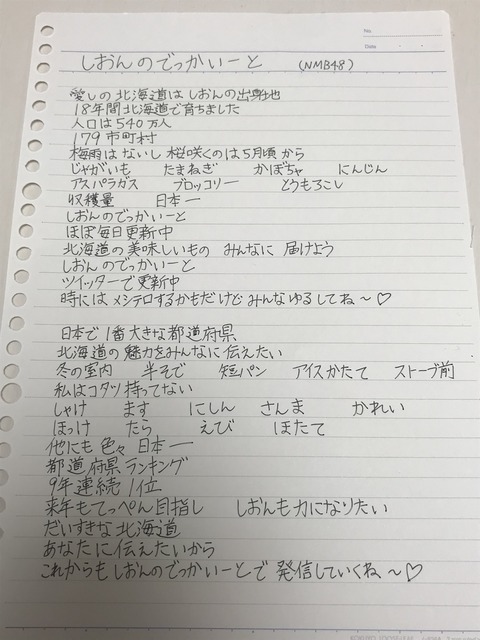 No.
Date
しおんのでっかいーと (NMB48)
愛しの北海道は しおんの出身地
18年間北海道で育ちました
人口は540万人
179市町村
梅雨はないし 桜咲くのは5月頃から
じゃがいも たまねぎ かぼちゃ にんじん
アスパラガス ブロッコリー とうもろこし
収穫量 日本一
しおんのでっかいーと
ほぼ毎日更新中
北海道の美味しいもの みんなに 届けよう
しおんのでっかいーと
ツイッターで更新中
時には メシテロするかもだけど みんなゆるしてね〜♡
日本で1番大きな都道府県
北海道の魅力をみんなに伝えたい
冬の室内 半そで 短パン アイスかたて ストーブ前
私はコタツ持ってない
しゃけ ます にしん さんま かれい
ほっけ たら えび ほたて
他にも色々 日本一
都道府県ランキング
9年連続1位
来年もてっぺん目指し しおんも力になりたい
だいすきな北海道
あなたに伝えたいから
これからもしおんのでっかいーとで 発信していくね〜♡